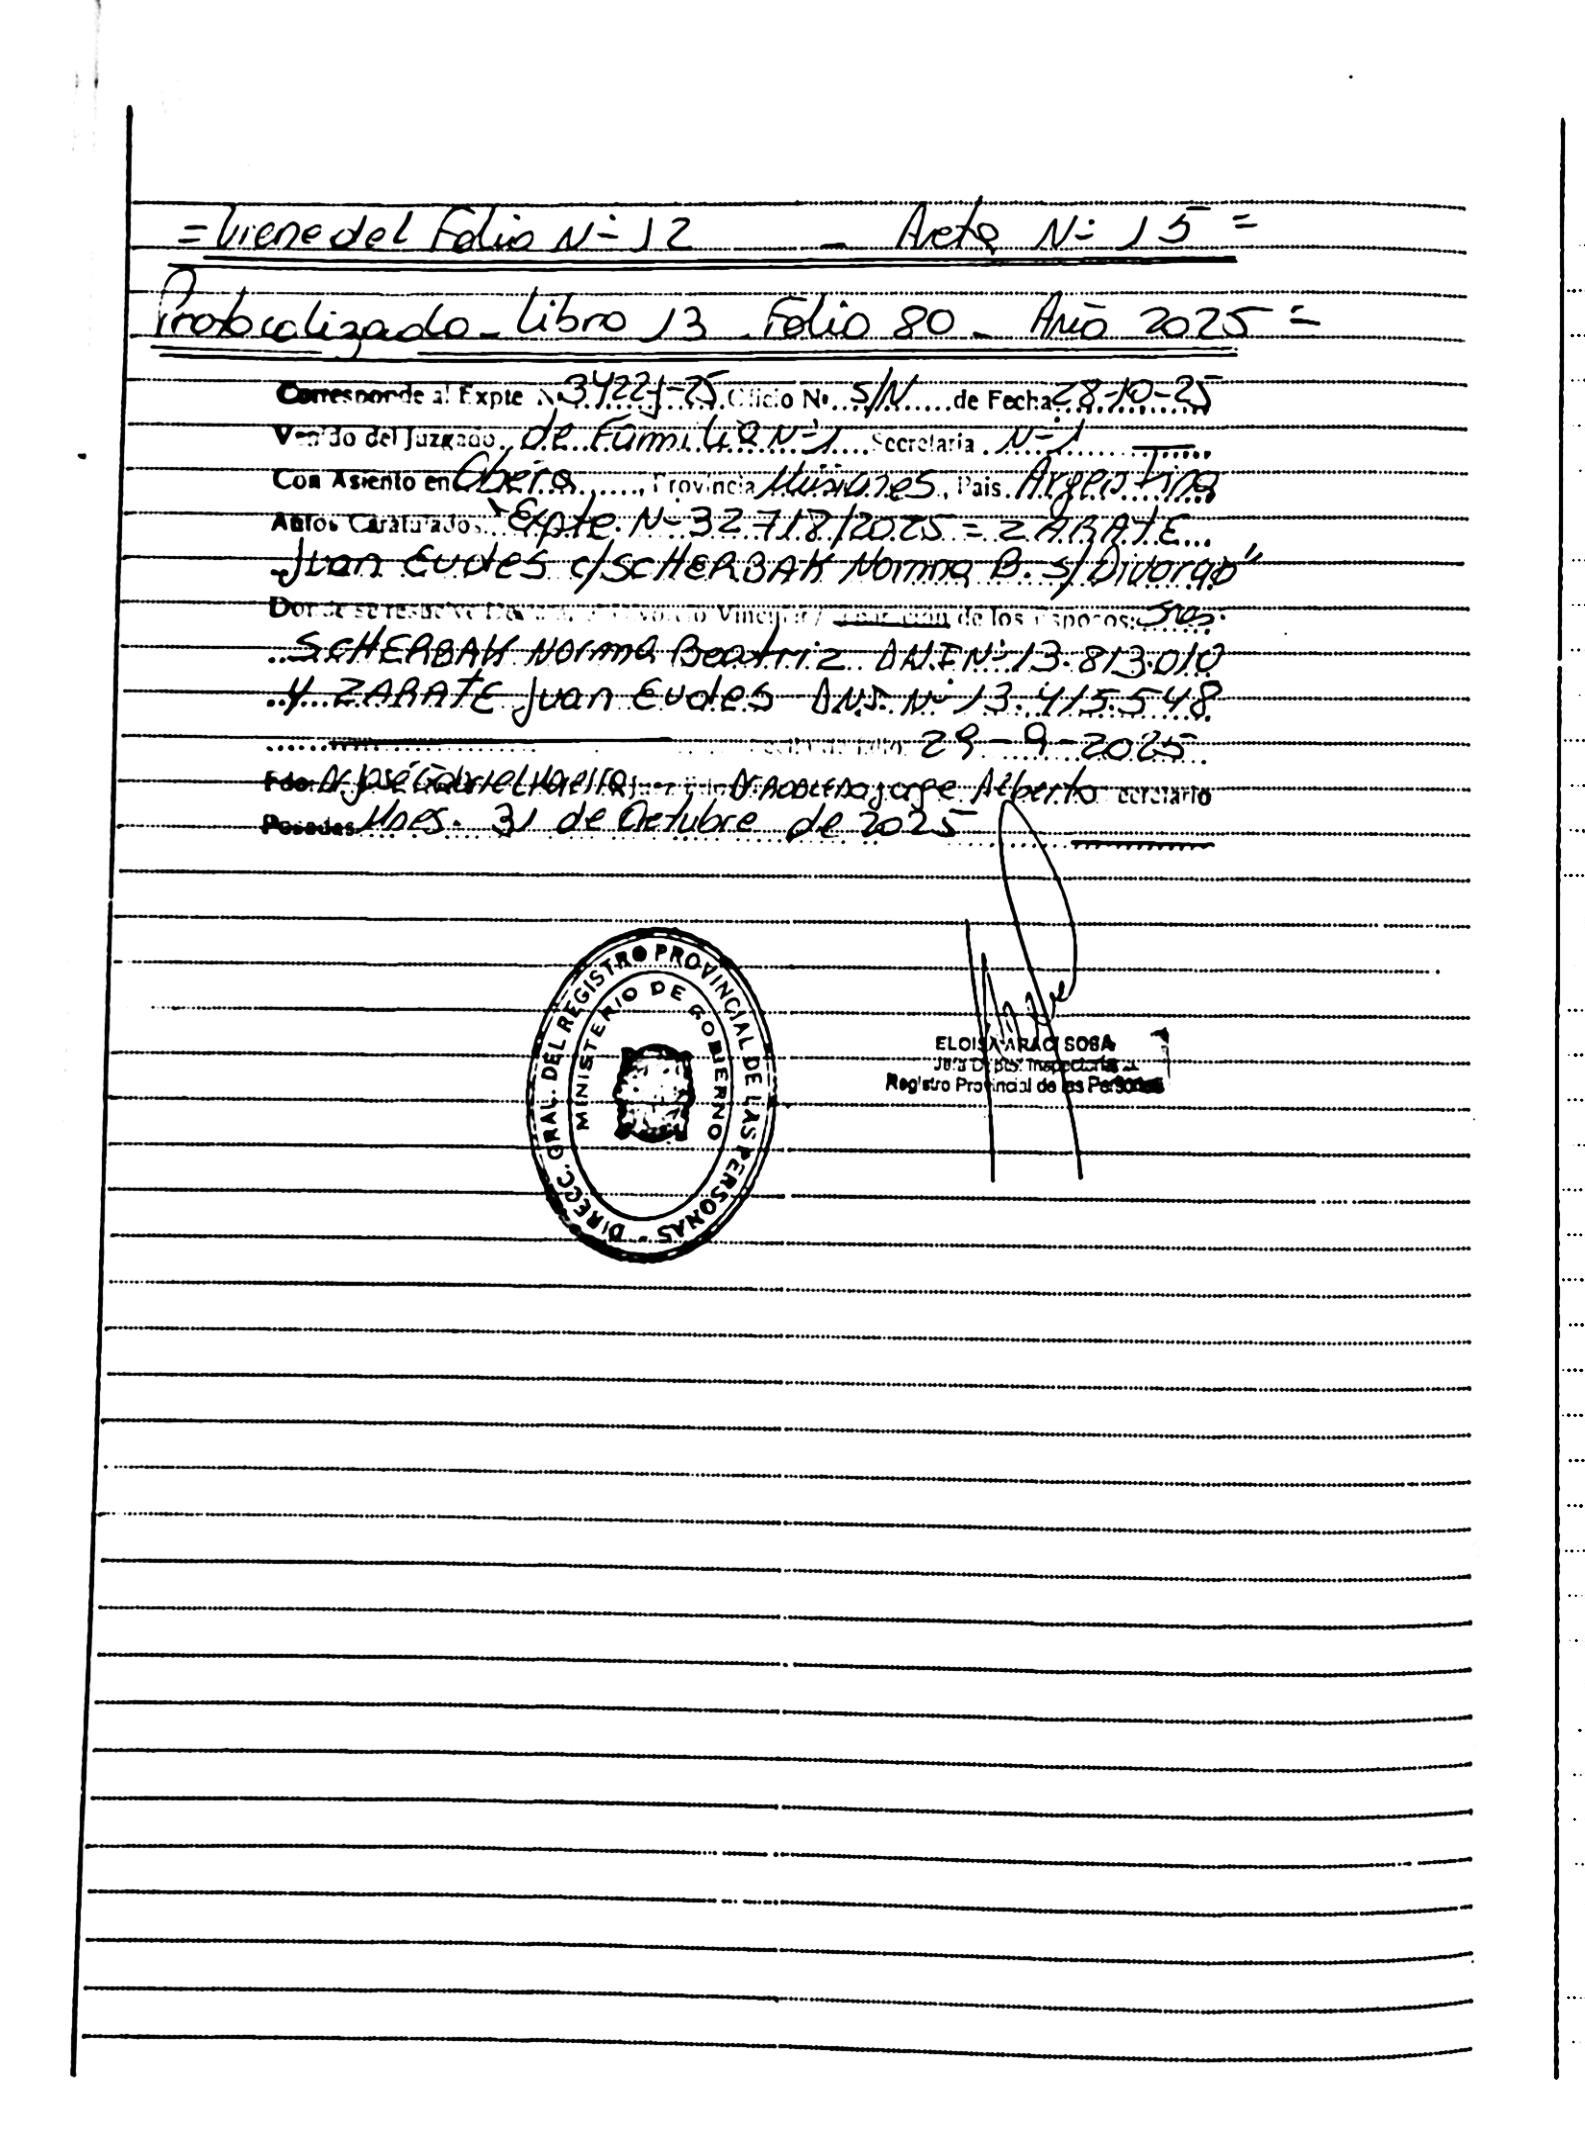 = Viene del Folio Nº 12 - Acta Nº 15 =
Protocolizado - Libro 13 - Folio 80 - Año 2025 =
Corresponde al Expte Nº 34221-25 Oficio Nº S/N de Fecha 28-10-25
Venido del Juzgado de Familia Nº 1 Secretaria Nº 1
Con Asiento en Oberá, Provincia Misiones, Pais Argentina
Autos Caratulados: "Expte. Nº 32718/2025 = ZARATE
Juan Eudes c/SCHERBAK Norma B. s/Divorcio"
Donde se resuelve Divorcio Vincular / Separación de los Esposos: Sres.
SCHERBAK Norma Beatriz D.N.I Nº 13.813.010
y ZARATE Juan Eudes D.N.I. Nº 13.415.548
29-9-2025
Fdo. Dr José Gabriel Juez Jorge Alberto Secretario
Posadas Mnes. 31 de Octubre de 2025
DIRECC. GRAL. DEL REGISTRO PROVINCIAL DE LAS PERSONAS -
MINISTERIO DE GOBIERNO
ELOISA ARACI SOSA
Jefa Dptos. Inspectoria
Registro Provincial de las Personas